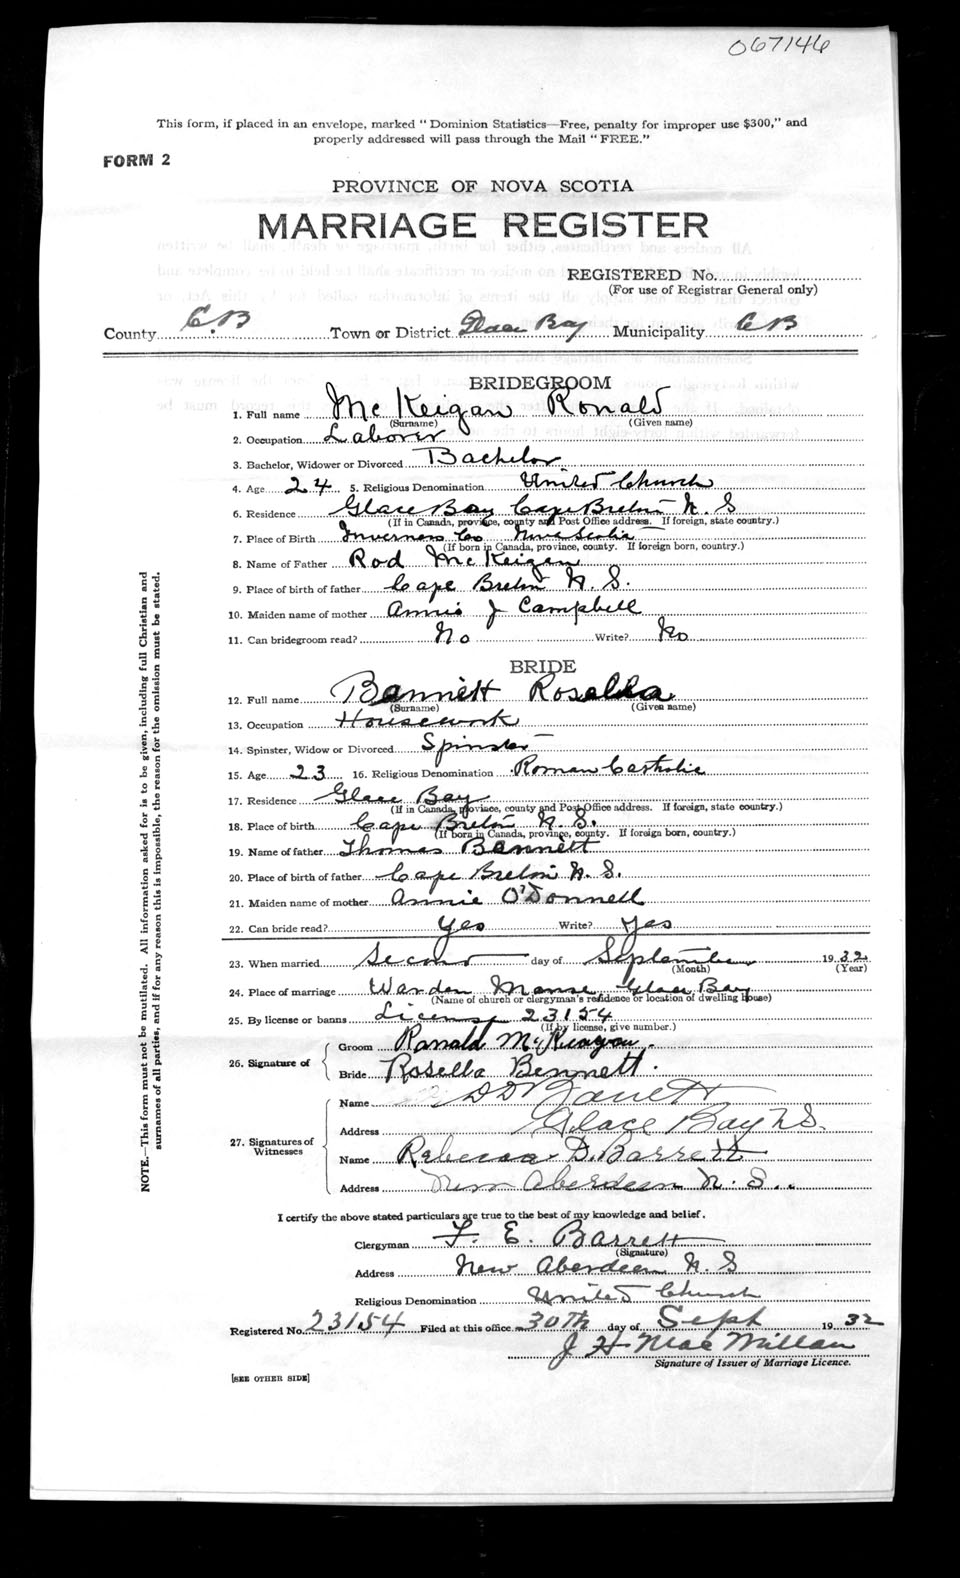 067146
This form, if placed in an envelope, marked "Dominion Statistics—Free, penalty for improper use $300," and
properly addressed will pass through the Mail "FREE."
FORM 2
PROVINCE OF NOVA SCOTIA
MARRIAGE REGISTER
REGISTERED No.
(For use of Registrar General only)
County C.B Town or District Glace Bay Municipality C B
BRIDEGROOM
1. Full name McKeigan Ronald
(Surname) (Given name)
2. Occupation Laborer
3. Bachelor, Widower or Divorced Bachelor
4. Age 24 5. Religious Denomination United Church
6. Residence Glace Bay Cape Breton N. S
(If in Canada, province, county and Post Office address. If foreign, state country.)
7. Place of Birth Inverness Co Nova Scotia
(If born in Canada, province, county. If foreign born, country.)
8. Name of Father Rod McKeigan
9. Place of birth of father Cape Breton N. S.
10. Maiden name of mother Annie J Campbell
11. Can bridegroom read? No Write? No
BRIDE
12. Full name Bennett Rosella
(Surname) (Given name)
13. Occupation Housework
14. Spinster, Widow or Divorced Spinster
15. Age 23 16. Religious Denomination Roman Catholic
17. Residence Glace Bay
(If in Canada, province, county and Post Office address. If foreign, state country.)
18. Place of birth Cape Breton N. S.
(If born in Canada, province, county. If foreign born, country.)
19. Name of father Thomas Bennett
20. Place of birth of father Cape Breton N. S.
21. Maiden name of mother Annie O'Donnell
22. Can bride read? Yes Write? Yes
23. When married Second day of September 1932
(Month) (Year)
24. Place of marriage Warden Manse Glace Bay
(Name of church or clergyman's residence or location of dwelling house)
25. By license or banns License 23154
(If by license, give number.)
26. Signature of
Groom Ranald McKeagan.
Bride Rosella Bennett.
27. Signatures of Witnesses
Name D D Barrett
Address Glace Bay N S.
Name Rebecca D. Barrett
Address New Aberdeen N. S.
I certify the above stated particulars are true to the best of my knowledge and belief.
Clergyman F. E. Barrett
(Signature)
Address New Aberdeen N. S
Religious Denomination United Church
Registered No. 23154 Filed at this office 30th day of Sept 1932
J H MacMillan
Signature of Issuer of Marriage Licence.
[SEE OTHER SIDE]
NOTE.—This form must not be mutilated. All information asked for is to be given, including full Christian and
surnames of all parties, and if for any reason this is impossible, the reason for the omission must be stated.